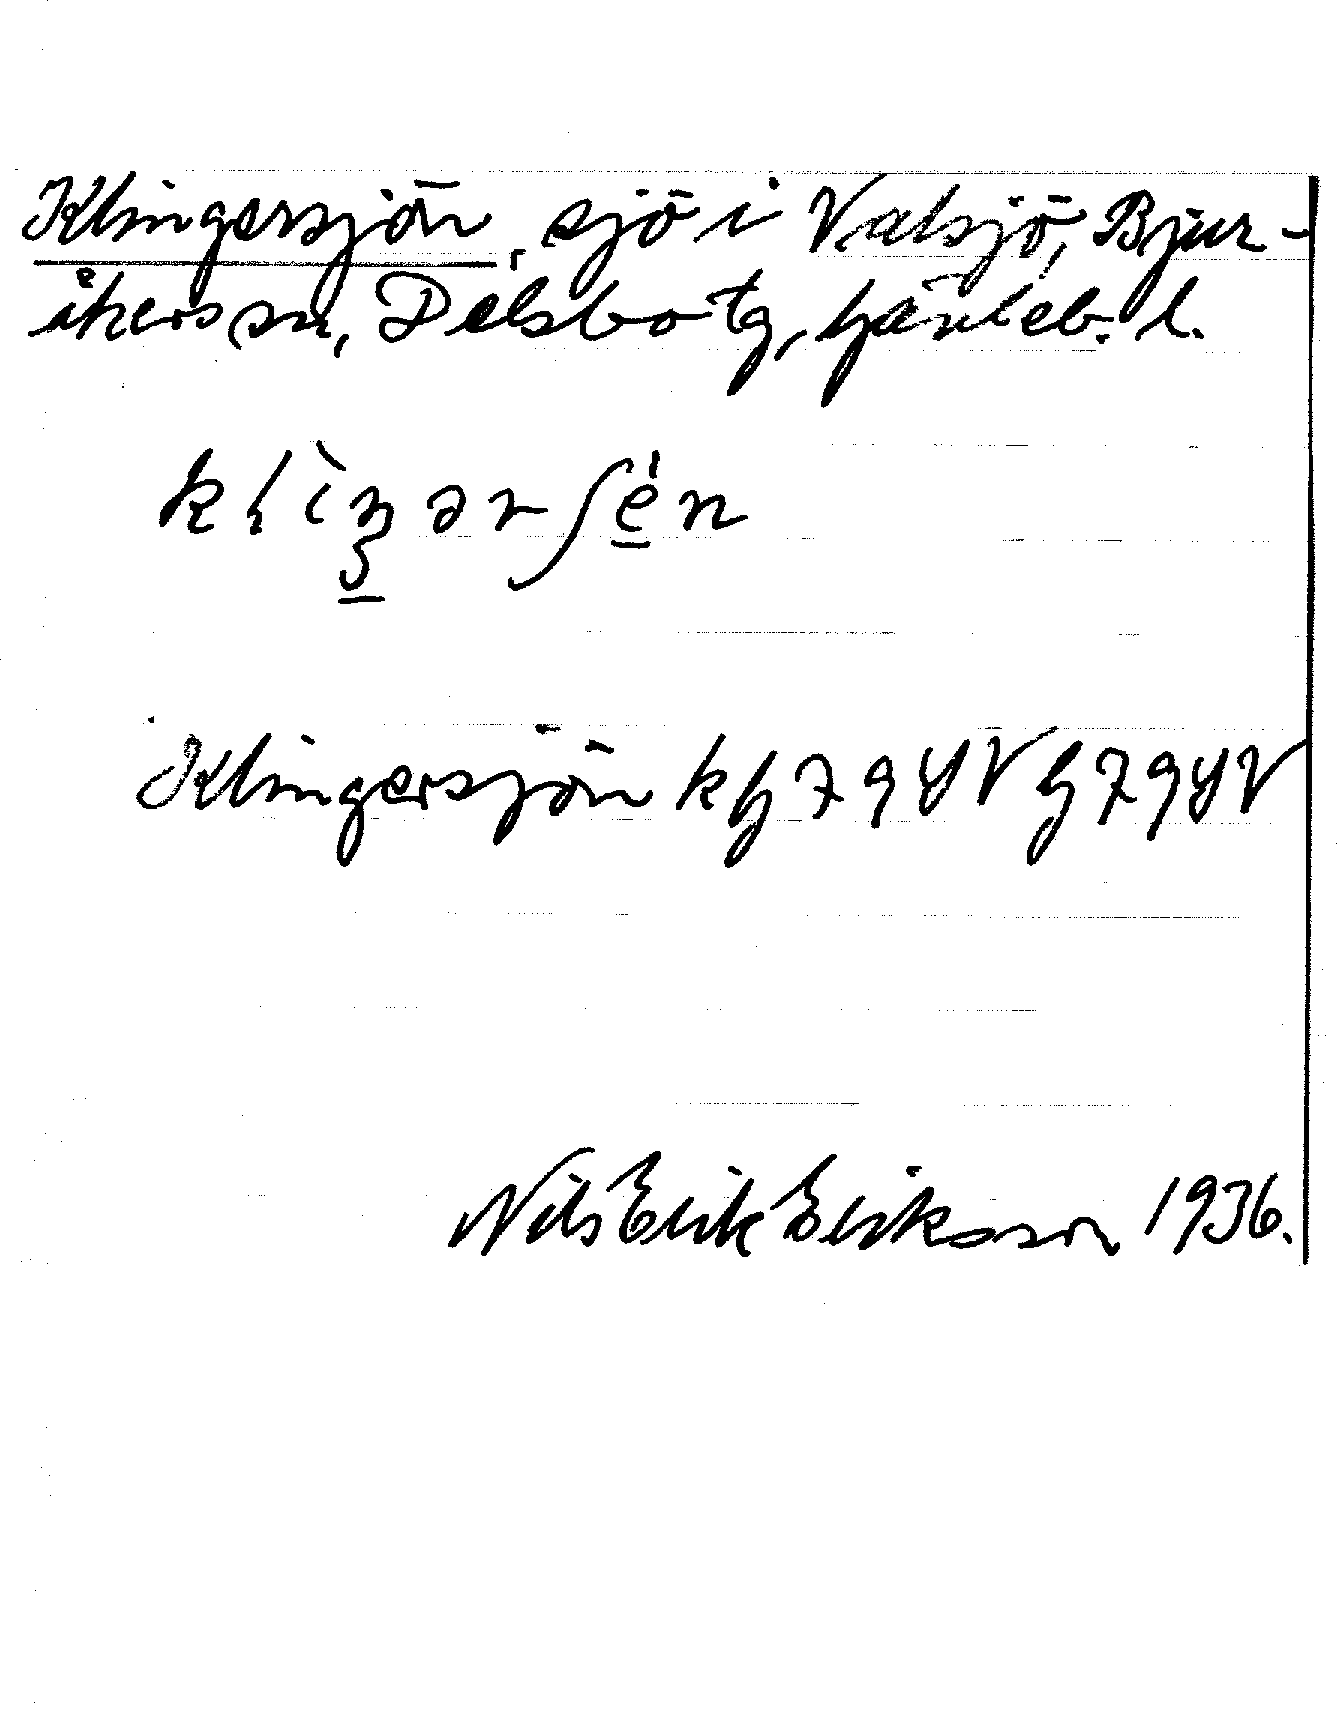 Klingersjön, sjö i Valsjö, Bjur-
åkers sn, Delsbo tg, Gävleb. l.
Klingersjön
Nils Erik Eriksson 1936.